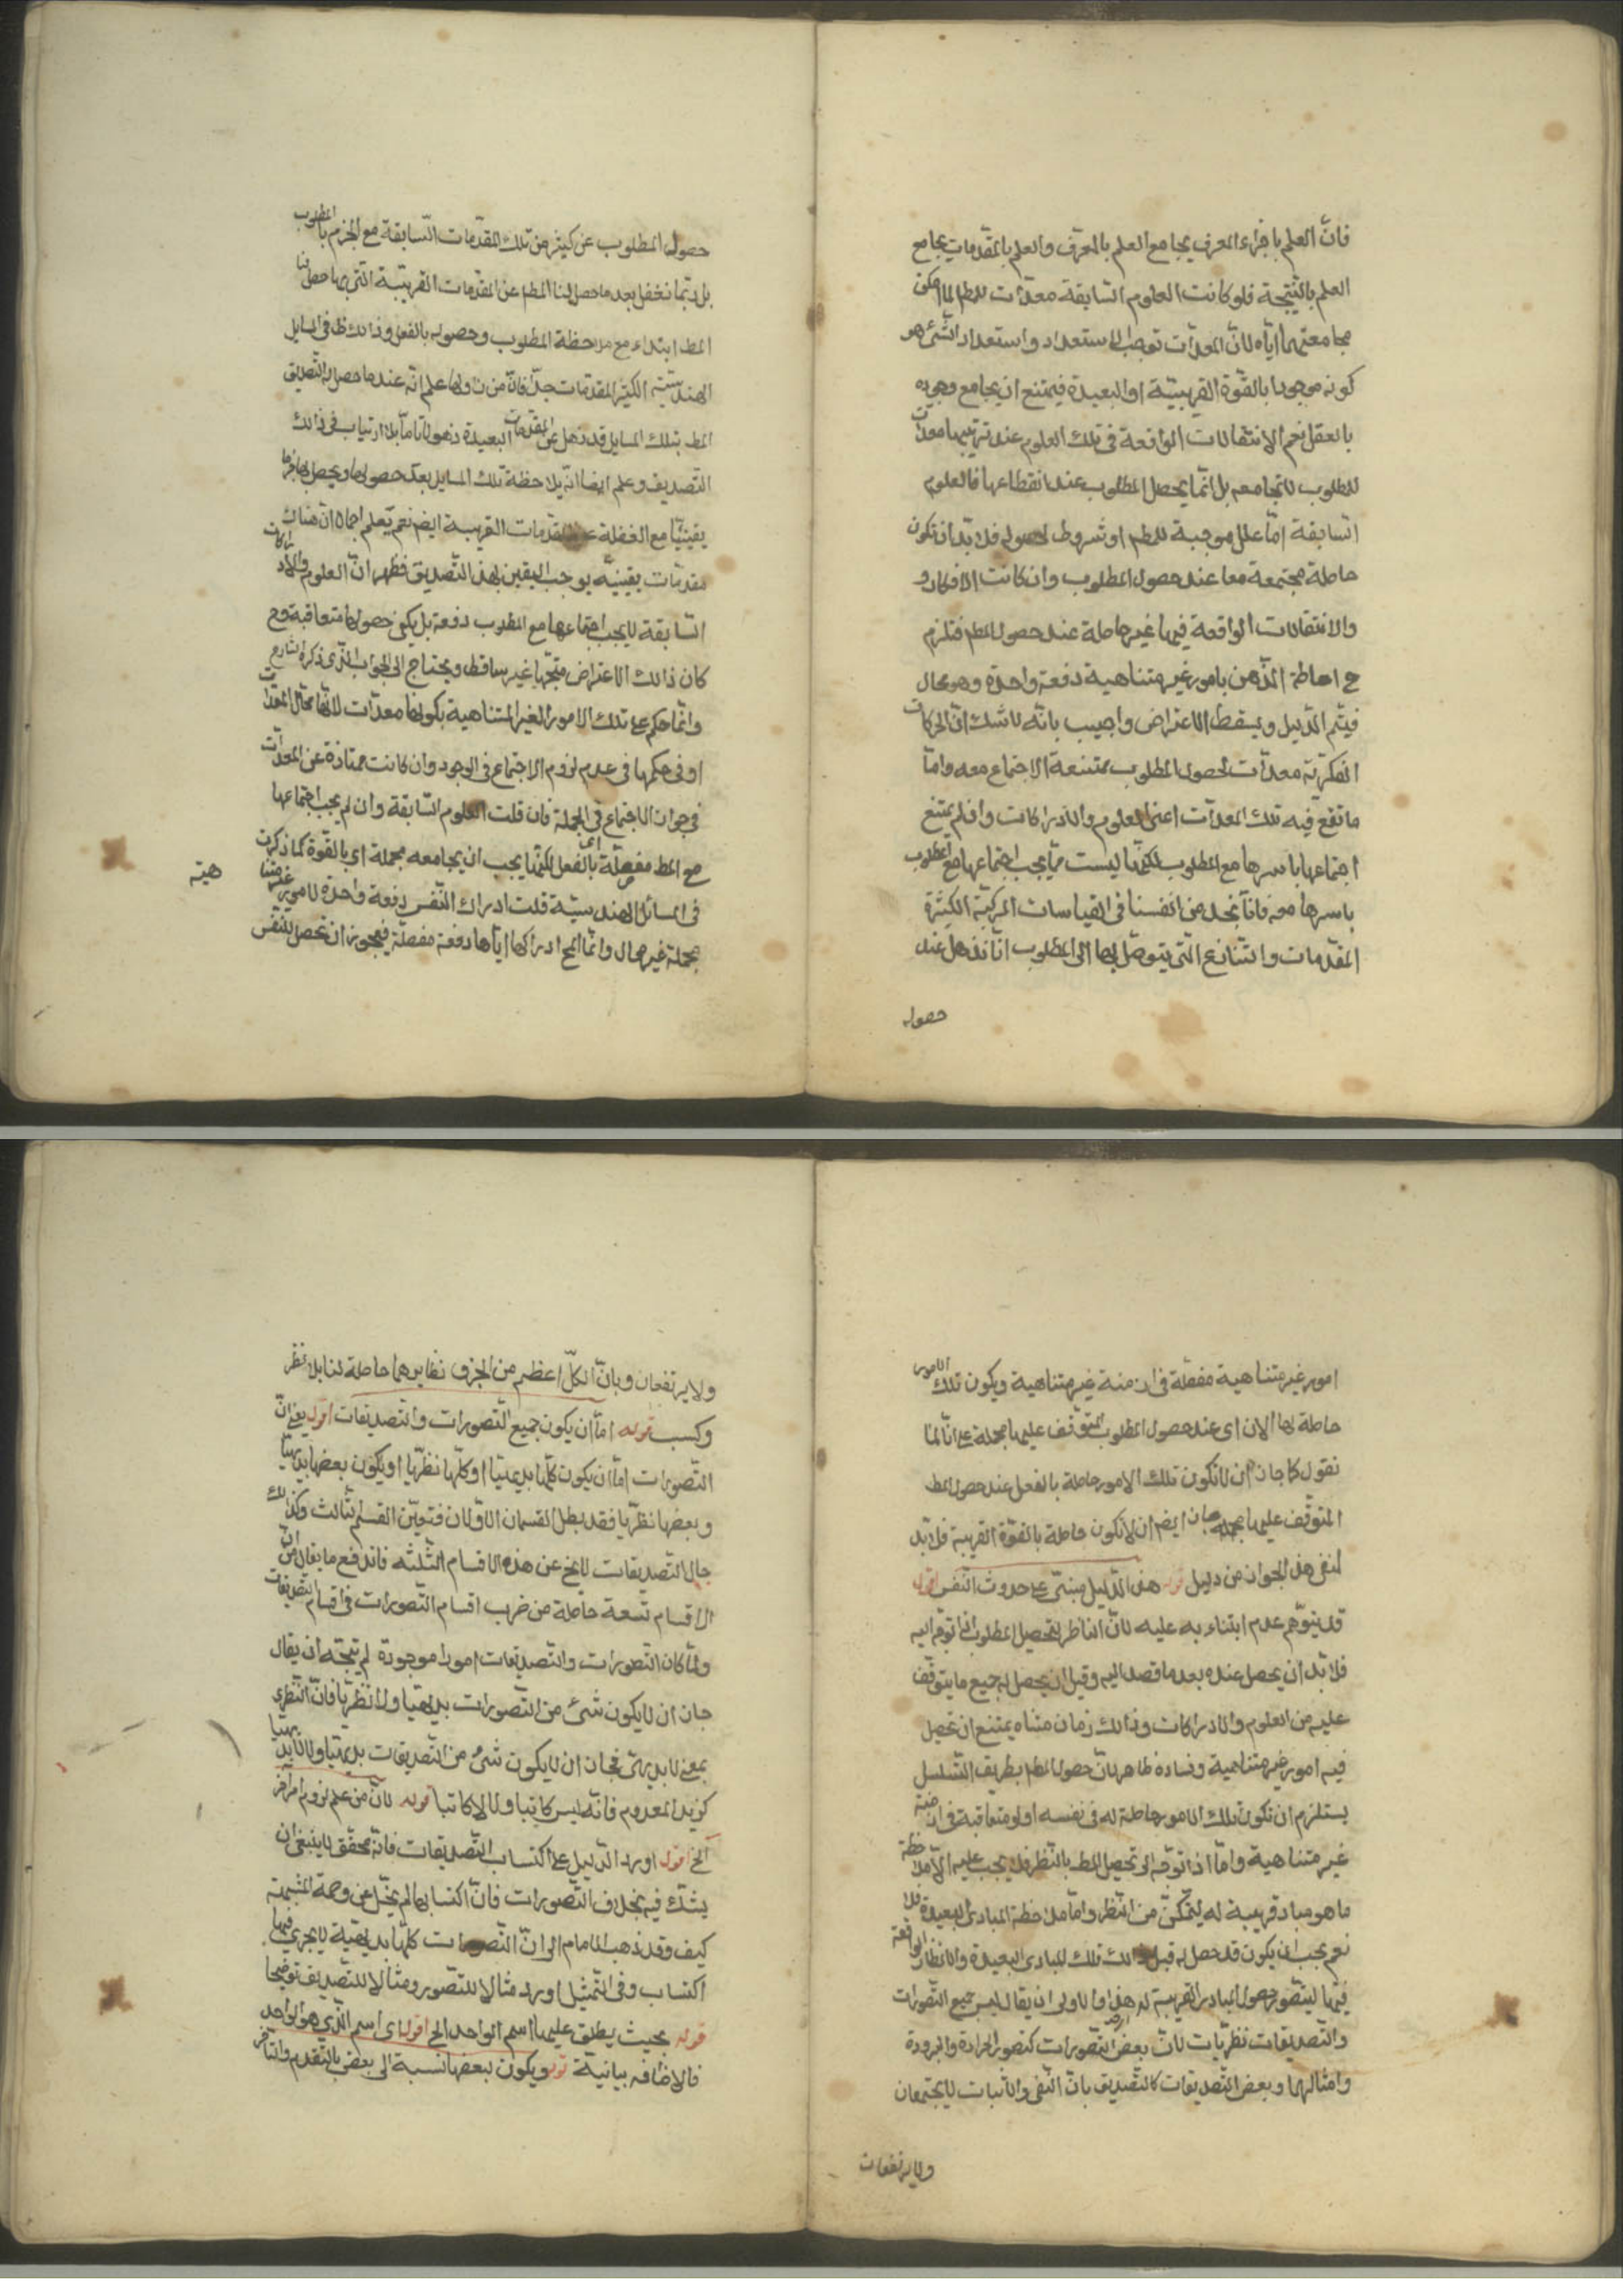 فانّ العلم باجزاء المعرف يجامع العلم بالمعرّف والعلم بالمقدّمات يجامع
العلم بالنّتيجة فلو كانت العلوم السّابقة معدّات للمط لما امكن
مجامعتهما ايّاه لانّ المعدّات توجب الاستعداد واستعداد الشّئ هو
كونه موجودا بالقوّة القريبيّة او البعيدة فيمتنع ان يجامع وجوده
بالعقل نعم الانتقالات الواقعة فى تلك العلوم عند ترتيبها معدّات
للمطلوب لا تجامعه بل انّما يحصل المطلوب عند انقطاعها فالعلوم
السّابقة امّا علل موجبة للمط او شروط لحصوله فلا بدّ ان تكون
حاصلة مجتمعة معا عند حصول المطلوب وان كانت الافكار و
والانتقالات الواقعة فيها غير حاصلة عند حصول المط فتلزم
ح احاطة الذّهن بامور غير متناهية دفعة واحدة وهو محال
فيتّم الدّليل ويسقط الاعتراض واجيب بانّه لا شك انّ الحركات
الفكريّة معدّات لحصول المطلوب ممتنعة الاجتماع معه وامّا
ما تقع فيه تلك المعدّات اعنى العلوم والادراكات وافلم يمتنع
اجتماعها باسرها مع المطلوب لكنّها ليست ممّا يجب اجتماعها مع المطلوب
باسرها معه فانّا نجد من انفسنا فى القياسات المركبّة الكثيرة
المقدّمات والنتايع الّتى يتوصّل بها الى المطلوب انّا نذهل عند
حصوله
حصول المطلوب عن كثير من تلك المقدّمات السّابقة مع الجزم بالمطلوب
بل ربّما نغفل بعد ما حصل لنا المط عن المقدّمات القريبيّة الّتى بها حصل لنا
المط ابتداء مع ملاحظة المطلوب وحصوله بالفعل وذالك ظ فى المسايل
الهندسيّة الكثير المقدّمات جدّا فانّ من زاولها علم انّه عند ما حصل له التّصديق
المط بتلك المسايل قد ذهل عن المقدّمات البعيدة ذهولا تامّا بلا ارتياب فى ذالك
التصديق وعلم ايضا انّه يلاحظة تلك المسايل بعد حصولها ويحصل بها جزما
يقينيّا مع الغفلة عن المقدّمات القريبية ايض نعم يعلم اجمالا انّ هناك
مقدّمات يقينيّه يوجب اليقين بهذ التصديق فظهر انّ العلوم والادراكات
السّابقة لا يجب اجتماعها مع المطلوب دفعة بل يكفى حصولها متعاقبة وح
كان ذالك الاعتراض متّجها غير ساقط ويحتاج الى الجواب الّذى ذكره الشارح
وانّما حكم على تلك الامور الغير المتناهية بكونها معدّات لانّها محّال المعدّات
او فى حكمها فى عدم لزوم الاجتماع فى الوجود وان كانت ممتازة عن المعدّات
فى جواز الاجتماع فى الجملة فان قلت العلوم السّابقة وان لم يجب اجتماعها
مع المط مفصلّة اى بالفعل لكنّها يجب ان يجامعه مجملة اى بالقوة كما ذكرت
فى المسائل الهندسيّة قلت ادراك النّفس دفعة واحدة لامور غير متنا
هية
مجملة غير محال وانّما المح ادراكها ايّاها دفعة مفصلّة فيجوز ان تحصل للنّفس
امور غير متناهية مفصّلة فى ازمنة غير متناهية ويكون تلك الامور
حاصلة لها الان اى عند حصول المطلوب المتوقّف عليها مجملة على انّا لنا
نقول كما جاز ان لا تكون تلك الامور حاصلة بالفعل عند حصول المط
المتوقّف عليها مجملة جاز ايض ان لا تكون حاصلة بالقوّة القريبية فلا بدّ
لنفى هذ الجواز من دليل قوله هذ الدّليل مبنىّ على حدوث النّفس اقول
قد يتوّهم عدم ابتناء به عليه لانّ النّاظر لتحصيل المطلوب اذا توجّه اليه
فلا بّد ان يحصل عنده بعد ما قصد اليه وقبل ان يحصل له جميع ما يتوّقف
عليه من العلوم والادراكات وذالك زمان متناه يمتنع ان تحصل
فيه امور غير متناهية وفساده ظاهر لانّ حصول المط بطريق التّسلسل
يستلزم ان تكون تلك الامور حاصلة له فى نفسه او لو متعاقبة فى ازمنة
غير متناهية وامّا اذا توجّه الى تحصيل المط بالنّظر فلا يجب عليه الّا ملاحظة
ما هو مباد قريبية له ليتمّكن من النّظر وامّا ملاحظة المبادى البعيدة فلا
نعم يجب ان يكون قد حصل له قبل ذالك تلك المبادى البعيدة والانظار الواقعة
فيها ليتصّور حصول المبادى القريبية له هذ والاولى ان يقال ليس جميع التّصورات
والتّصديقات نظريّات لانّ بعض التّصورات كتصور الحرارة والبرودة
وامثالهما وبعض التّصديقات كالتّصديق بانّ النّفى والاثبات لا يجتمعان
ولا يرتفعان
ولا يرتفعان وبانّ الكلّ اعظم من الجزء نظايرهما حاصلة لنا بلا نظر
وكسب قوله امّا ان يكون جميع التّصورات والتّصديقات اقول يعنى انّ
التّصورات امّا ان يكون كلّها بديهيّا او كلّها نظريّا او يكون بعضها بديهيّا
وبعضها نظريّا فقد بطل القسمان الاوّلان فتعيّن القسم الثّالث وكذالك
حال التّصديقات لا يخ عن هذه الاقسام الثّلثه فاندفع ما يقال من انّ
الاقسام تسعة حاصلة من ضرب اقسام التّصورات فى اقسام التّصديقات
ولمّا كان التّصورات والتّصديقات امورا موجودة لم يتّجه ان يقال
جاز ان لا يكون شئ من التّصورات بديهيّا ولا نظريّا فانّ النّظرى
بمعنى لا بديهىّ فجاز ان لا يكون شئ من التّصديقات بديهيّا ولا لا بديهيّا
كزيد المعدوم فانّه ليس كاتبا ولا لا كاتبا قوله لانّ من علم لزوم امر لاخر
آلخ اقول اورد الدّليل على اكتساب التّصديقات فانّه محقّق لا ينبغى ان
يشّك فيه بخلاف التّصورات فانّ اكتسابها لم يخّل عن وصمة الشبهة
كيف وقد ذهب الامام الى انّ التّصورات كلّها بديهيّة لا يجرى فيها
اكتساب وفى التّمثيل اورد مثالا للتّصور ومثالا للتّصديق توضيحا
قوله بحيث يطلق عليها اسم الواحد الخ اقول اى اسم الّذى هو الواحد
فالاضافه بيانيّة قوله ويكون لبعضها نسبة الى بعض بالتّقدم والتّاخر